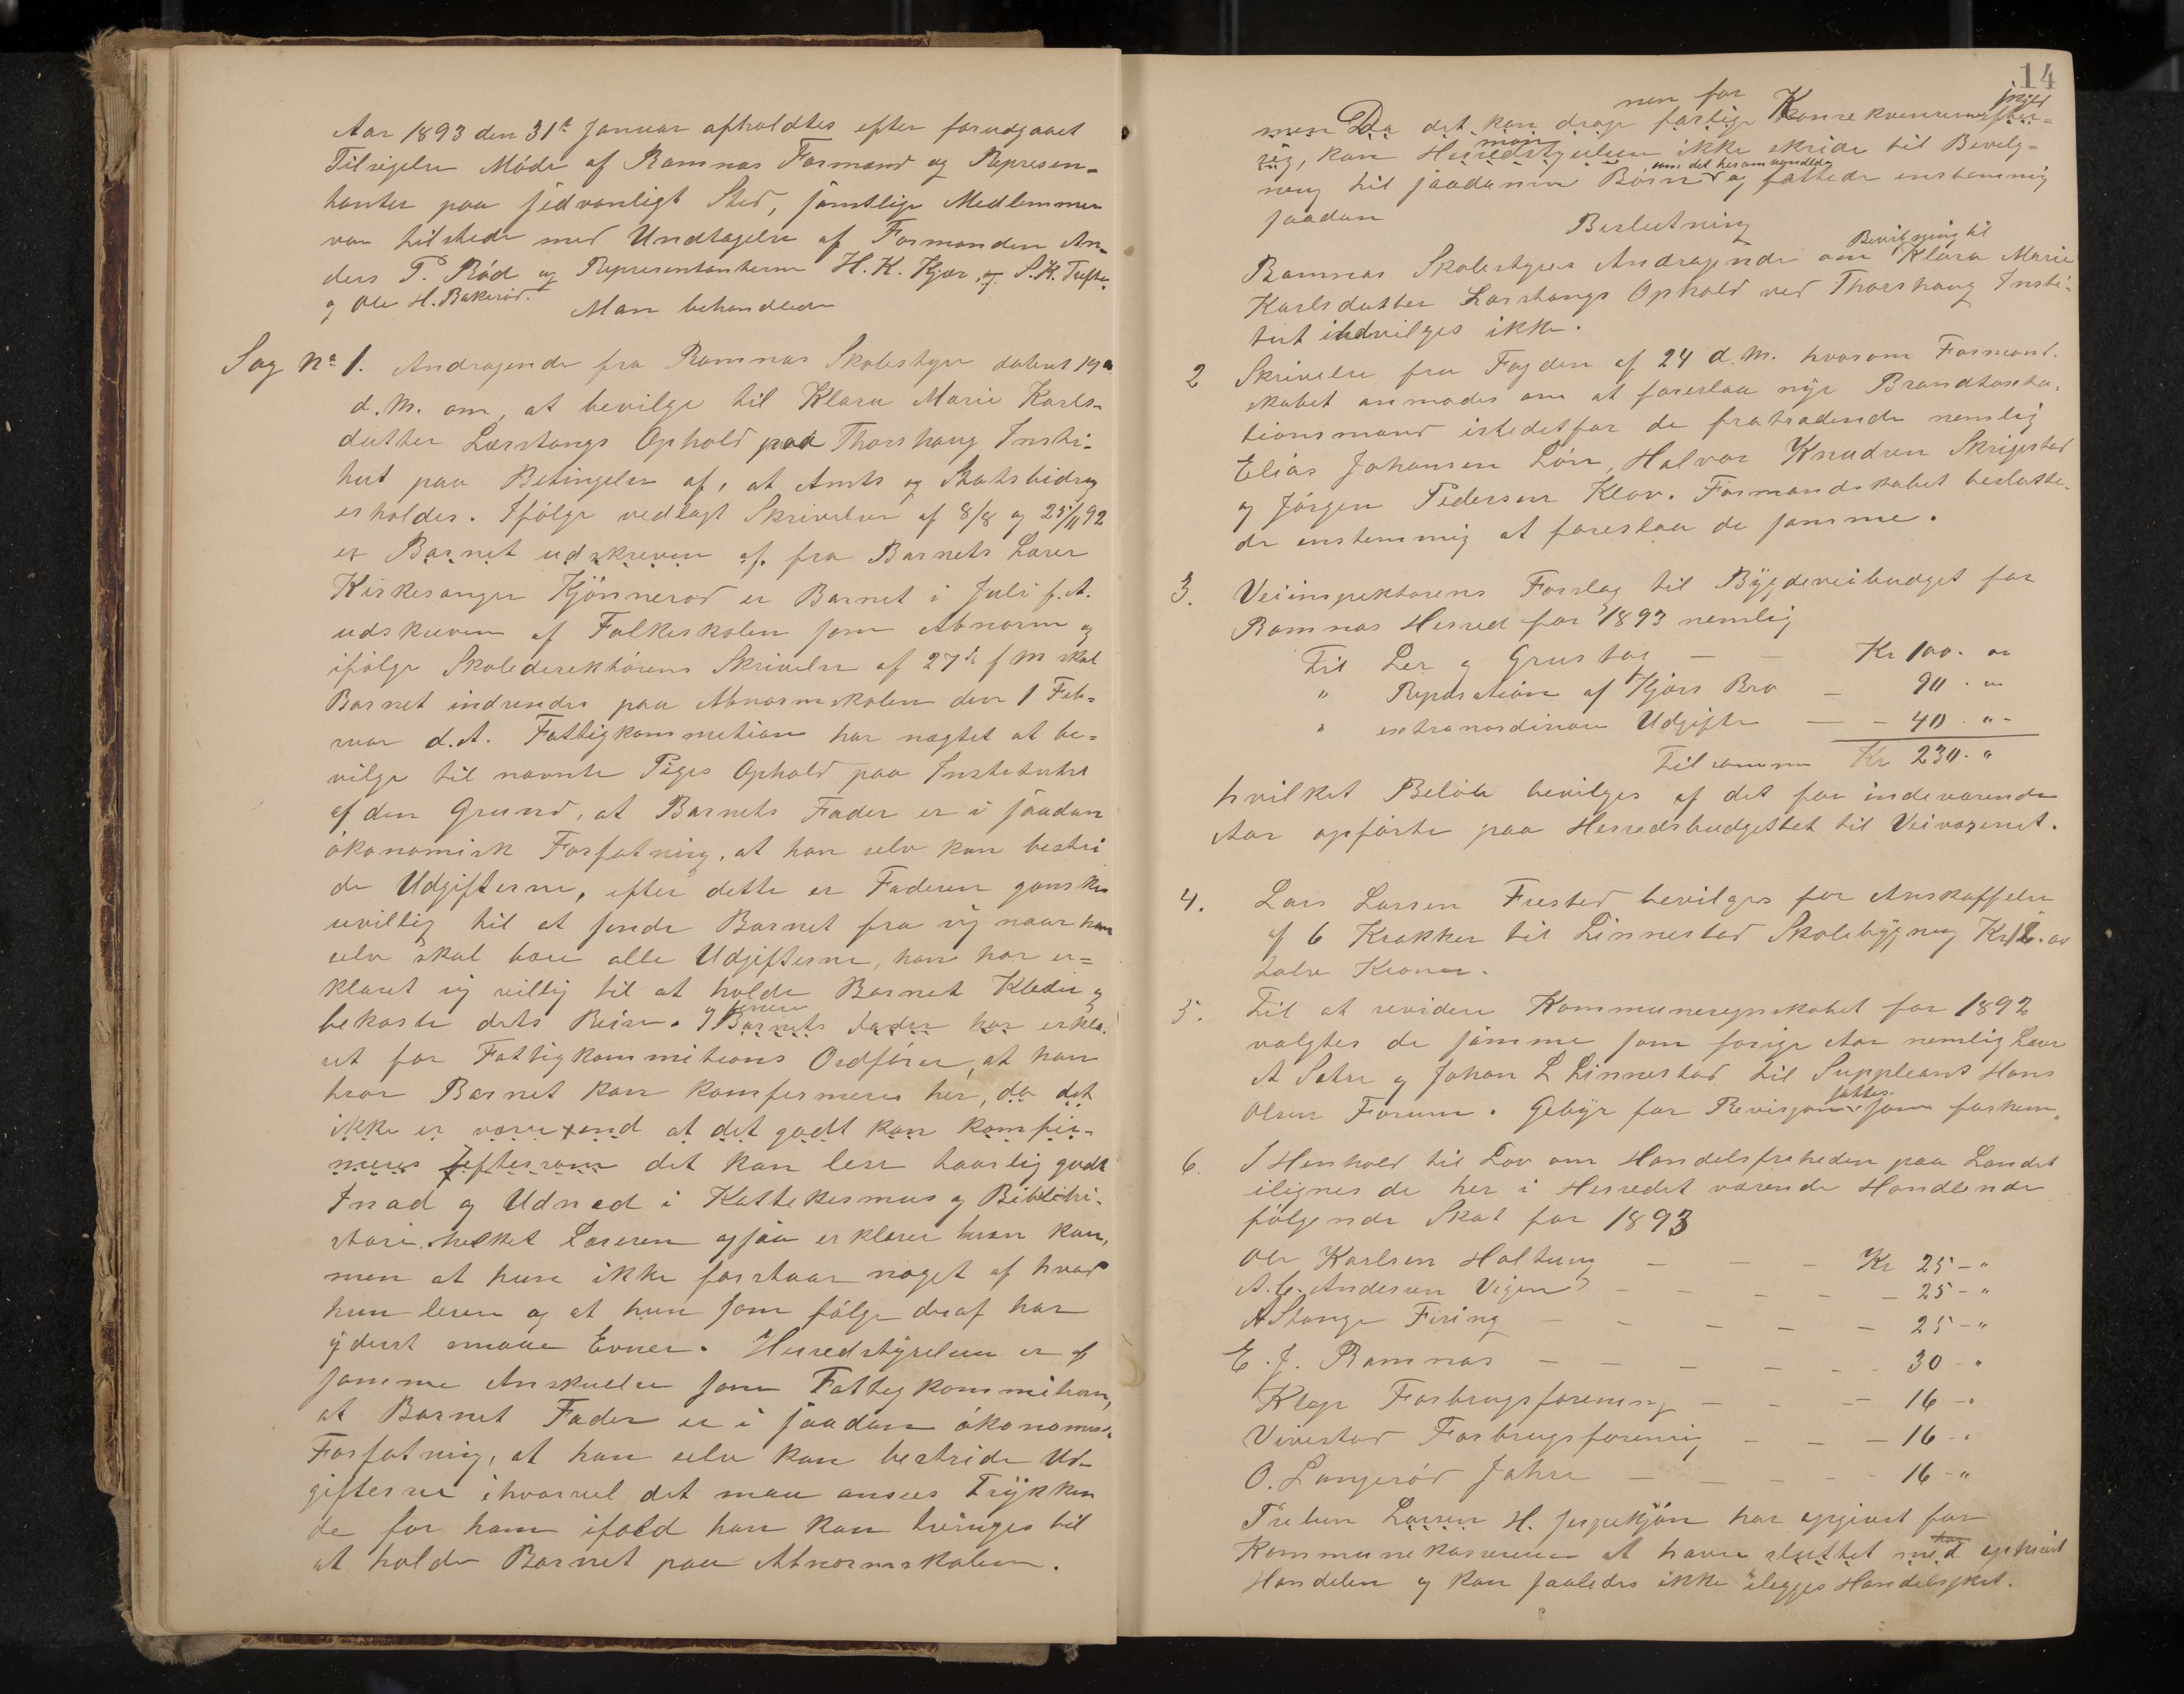 Aar 1893 den 31te Januar afholdtes efter forudgaaet
Tilsigelse Møde af Ramnæs Formænd og Represen-
tanter paa sedvanligt Sted, samtlige Medlemmer
var tilstede med Undtagelse af Formanden An-
ders P. Rød og Representanterne H. K. Kjær, og S. K. Tufte
og Ole H. Bakerød.
Man behandlede
Sag No 1. Andragende fra Ramnæs Skolestyre dateret 19
d.M. om, at bevilge til Klara Marie Karls-
datter Lærstangs Ophold paa Thorshaug Insti-
tut paa Betingelse af, at Amts og Statsbidrag
erholdes. Ifølge vedlagt Skrivelser af 8/8 og 25/11 92
er Barnet udskreven af fra Barnets Lærer
Kirkesanger Kjønnerød er Barnet i Juli f.A.
udskreven af Folkeskolen som Abnorm og
ifølge Skoledirektørens Skrivelse af 27de f M skal
Barnet indsendes paa Abnormskolen den 1 Feb-
ruar d.A. Fattigkommetion har nægtet at be-
vilge til nævnte Piges Ophold paa Institutet
af den Grund, at Barnets Fader er i saadan
økonomisk Forfatning, at han selv kan bestri
de Udgifterne, efter dette er Faderen ganske
uvillig til at sende Barnet fra sig naar han
selv skal bære alle Udgifterne, han har er-
klæret sig villig til at holde Barnet Klæder og
bekoste dets Reise. og Barnets Fader har erklæ-
ret for Fattigkommitions Ordfører, at han
tror Barnet kan komfermeres her, da det
ikke er værre end at det godt kan komfir-
meres eftersom det kan lese taarlig godt
Inad og Udnad i Kattekesmus og Biblehi-
storie hvilket Læreren ogsaa erklærer hun kan,
men at hun ikke forstaar noget af hvad
hun leser og at hun som følge deraf har
yderst smaae Evner. Herredstyrelsen er af
samme Anskuelse som Fattigkommitionen,
at Barnet Fader er i saadan økonomisk
Forfatning, at han selv kan bestride Ud-
gifterne ihvorvel det maa ansees Trykken
de for ham ifald han kan tvinges til
at holde Barnet paa Abnormskolen.
14
nen for
men Da det kan drage farlige Konsekvenser efter
sig, kan Herredstyrelsen ikke skride til Bevilg-
ning til saadanne Børn som det herom handler og fattede enstemmig
saadan
Beslutning
Ramnæs Skolestyres Andragende om Bevilgning til Klara Marie
Karlsdatter Lærstangs Ophold ved Thorshaug Insti-
tut indvilges ikke.
2 Skrivelse fra Fogden af 24 d.M. hvorom Formand-
skabet anmodes om at foreslaa nye Brandtaxta-
tionsmænd istedetfor de fratrædende nemlig
Elias Johansen Løn, Halvor Knudsen Skrigestad
og Jørgen Pedersen Klov. Formandskabet beslutte-
de enstemmig at foreslaa de samme.
3. Veiinspektørens Forslag til Bygdeveibudget for
Ramnæs Herred for 1893 nemlig
Til Ler og Grustag — — Kr 100. "
" Reparation af Kjørs Bro — 90. "
" extraordinære Udgifter — — 40. "
Tilsammen Kr 230. "
hvilket Beløb bevilges af det for indeværende
Aar opførte paa Herredsbudgettet til Veivæsenet.
4. Lars Larsen Firestad bevilges for Anskaffelse
af 6 Krakker til Linnestad Skolebygning Kr 12.00
tolv Kroner.
5. Til at revidere Kommuneregnskabet for 1892
valgtes de samme som forige Aar nemlig Laur
A Sætre og Johan L Linnestad til Suppleant Hans
Olsen Forum. Gebyr for Revisjon sættes som forhen.
6. I Henhold til Lov om Handelsfriheden paa Landet
ilignes de her i Herredet værende Handlende
følgende Skat for 1893
Ole Karlsen Haltung — — — Kr 25 - "
A. C. Andersen Vigen — — — — 25 - "
A Stange Firing — — — — 25 - "
E. J. Ramnæs — — — — 30 - "
Klop Forbrugsforening — — — 16 - "
Vivestad Forbrugsforening — — — 16 - "
O. Langerød Jahre — — — 16 - "
Preben Larsen H. har opgivet for
Kommunekassereren at have sluttet med ophørt
Handelen og kan saaledes ikke ilegges Handelsskat.